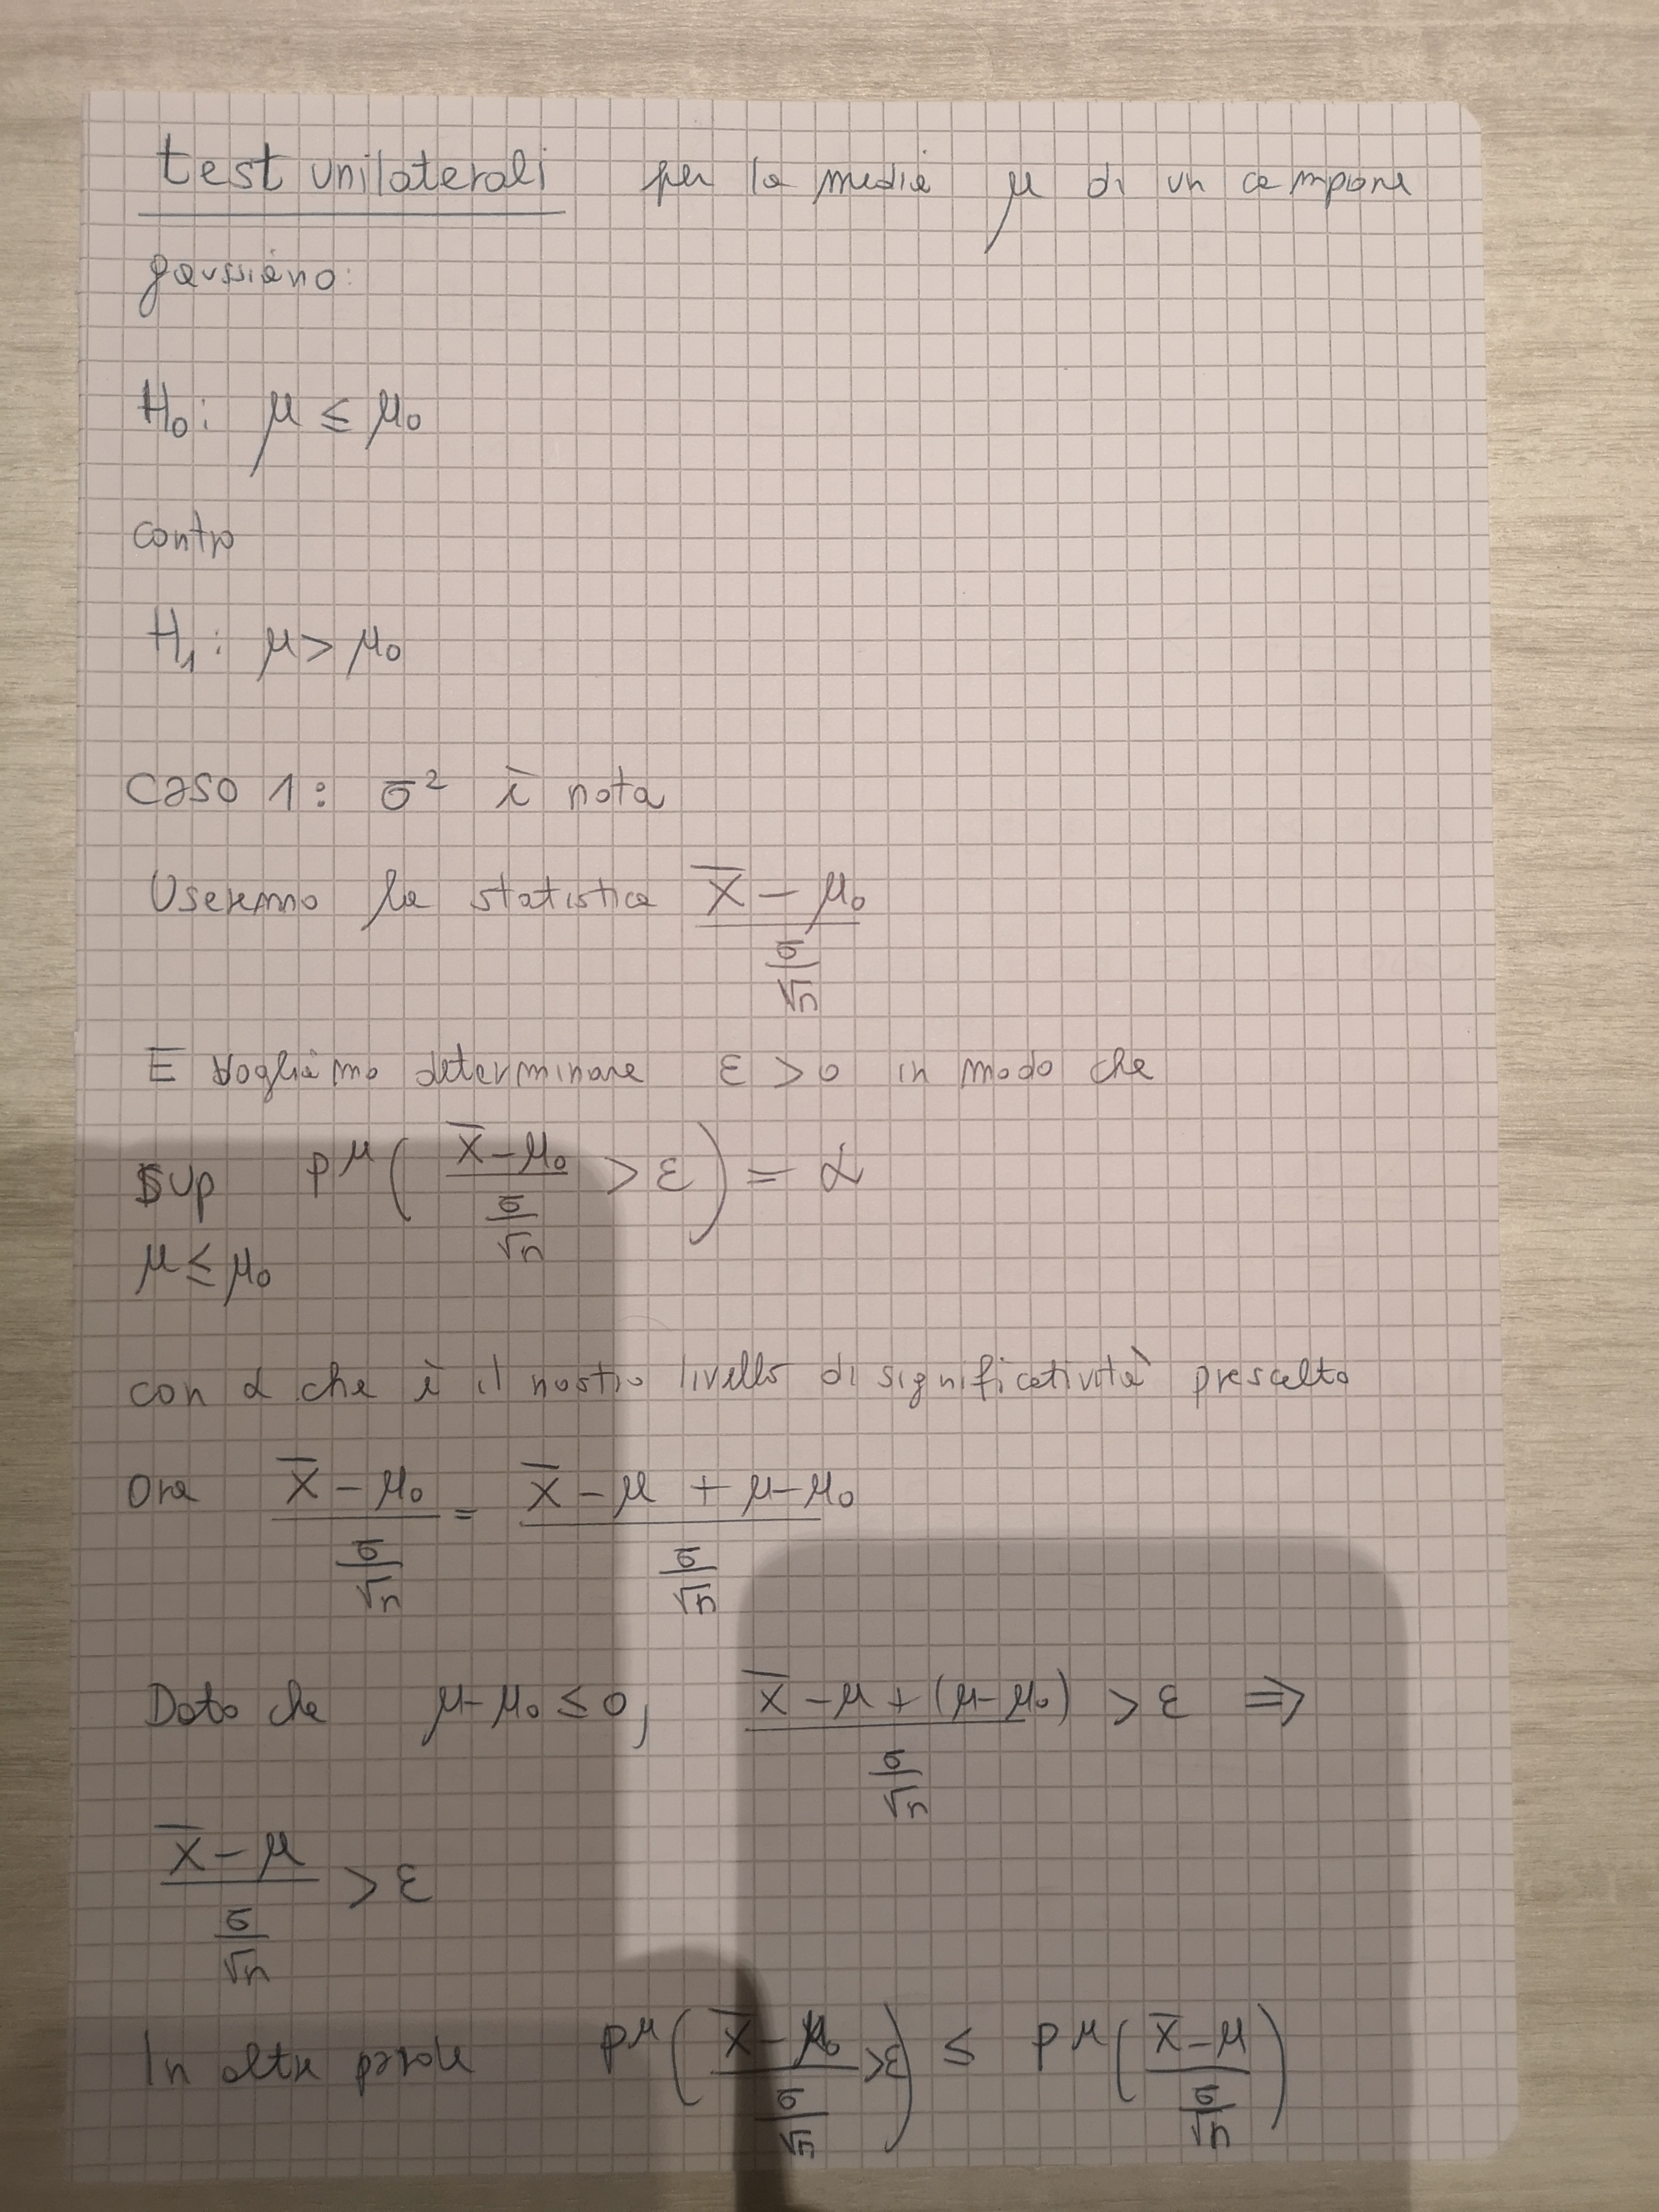 test unilaterali per la media μ di un campione
gaussiano:
H₀: μ ≤ μ₀
contro
H₁: μ > μ₀
Caso 1: σ² è nota
Useremo la statistica (X̄ - μ₀)/(σ/√n)
E vogliamo determinare ε > 0 in modo che
sup P^μ( (X̄ - μ₀)/(σ/√n) > ε ) = α
μ ≤ μ₀
con α che è il nostro livello di significatività prescelto
Ora (X̄ - μ₀)/(σ/√n) = (X̄ - μ + μ - μ₀)/(σ/√n)
Dato che μ - μ₀ ≤ 0, (X̄ - μ + (μ - μ₀))/(σ/√n) > ε ⇒
(X̄ - μ)/(σ/√n) > ε
In altre parole P^μ( (X̄ - μ₀)/(σ/√n) > ε ) ≤ P^μ( (X̄ - μ)/(σ/√n) )